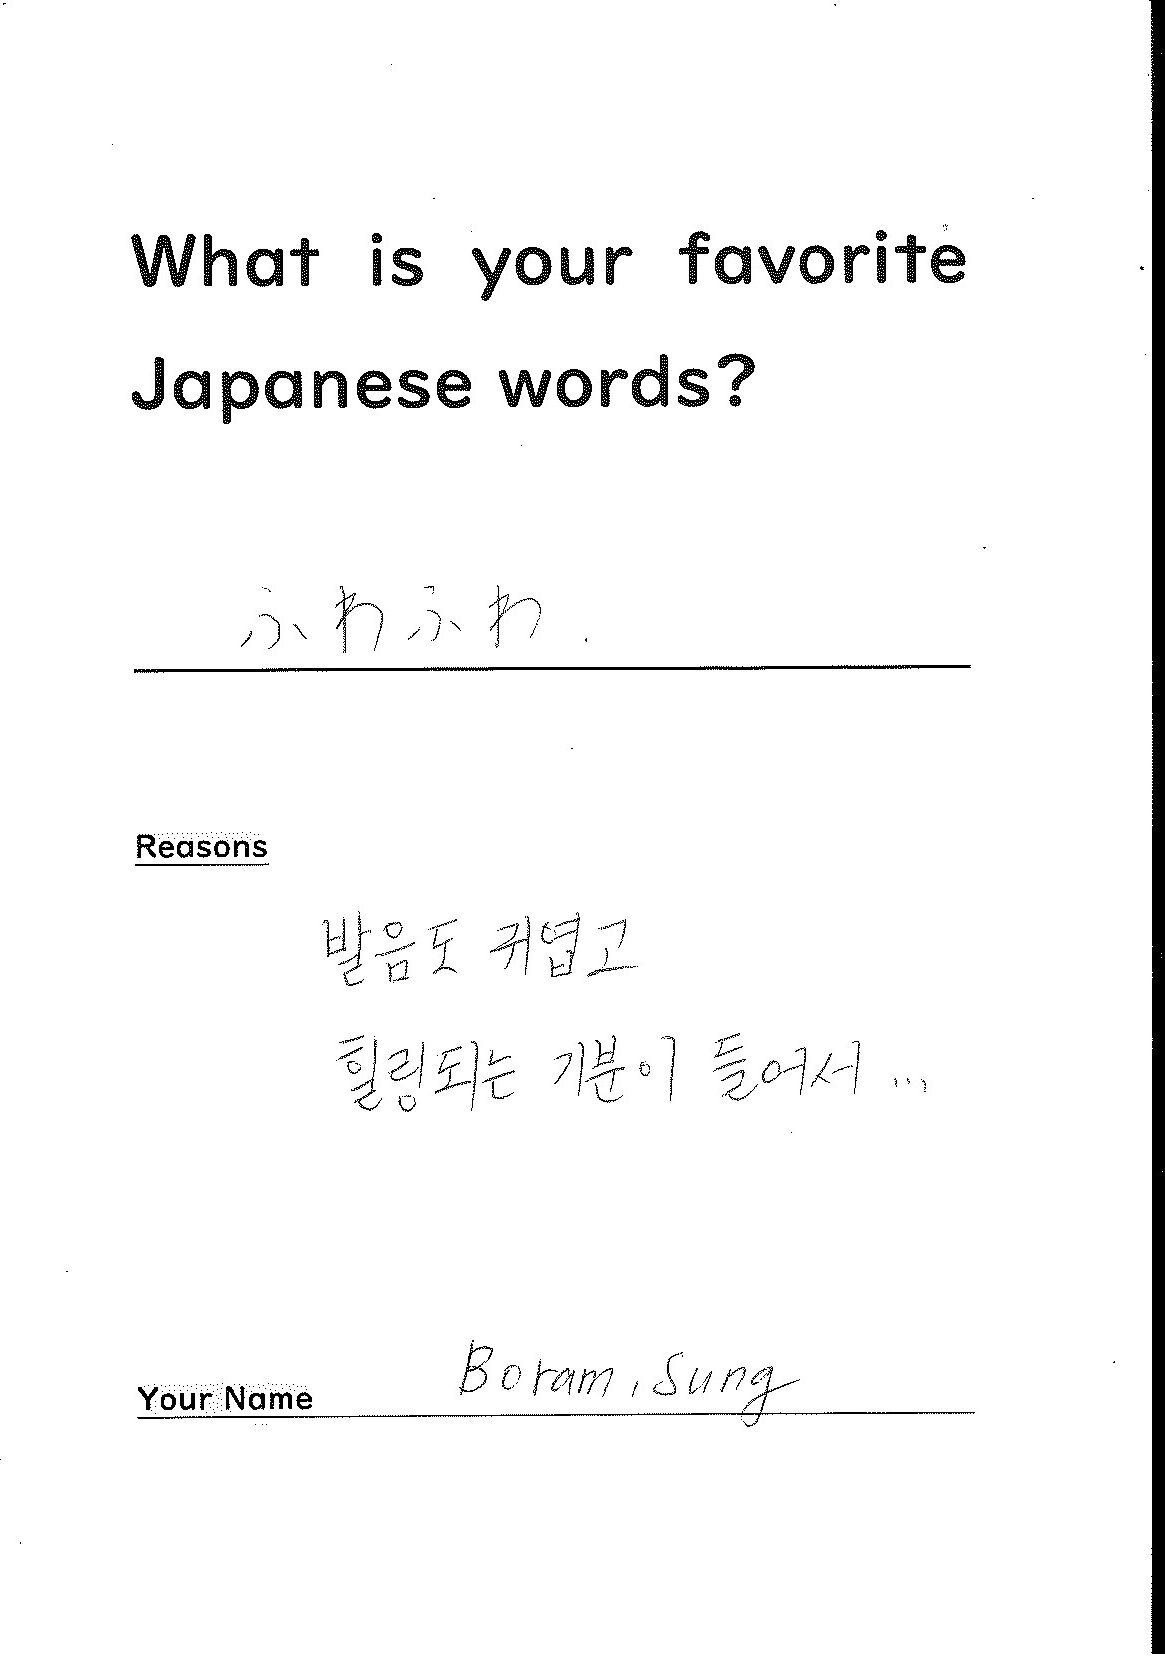 What is your favorite
Japanese words?
ふわふわ.
Reasons
발음도 귀엽고
힐링되는 기분이 들어서...
Your Name
Boram, Sung